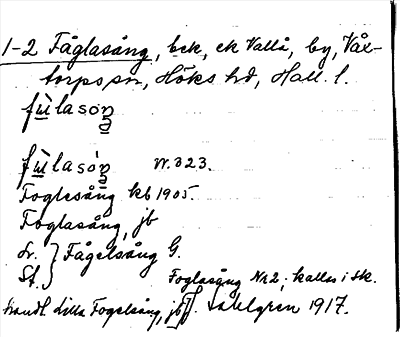 1-2 Fåglasång, bek, ek Vallå, by, Våx-
torps sn, Höks hd, Hall. l.
fùlasóŋ
fùlasóŋ W. 323.
Foglesång kb 1905.
Foglasång, jb
Lr. } Fågelsång G.
St. }
Foglasång Nr 2; kallas i sk.
handl. Lilla Fogelsång, jb. Sahlgren 1917.